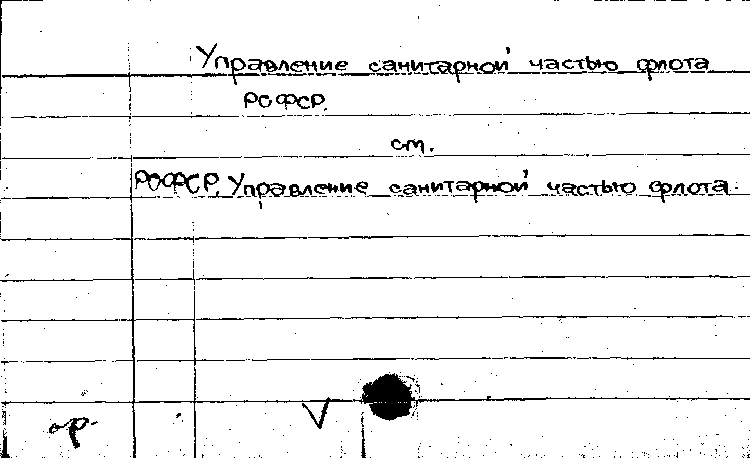 Управление санитарной частью флота
РСФСР.
см.
РСФСР. Управление санитарной частью флота.